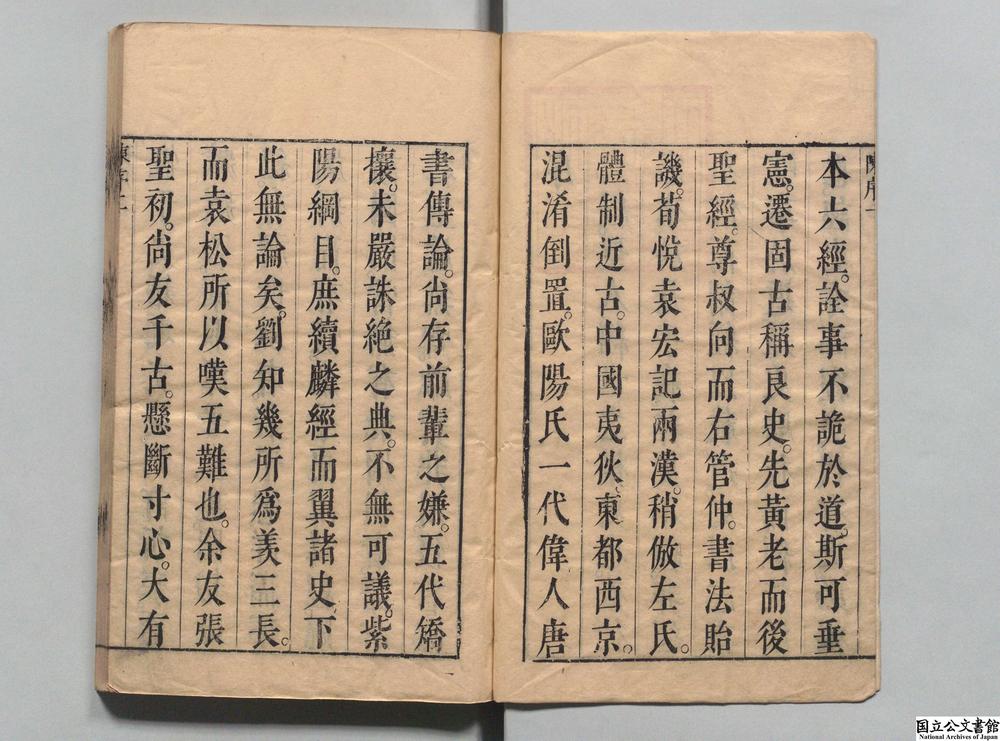 陳序一
本六經。詮事不詭於道。斯可垂
憲。遷固古稱良史。先黃老而後
聖經。尊叔向而右管仲。書法貽
譏。荀悅袁宏記兩漢。稍倣左氏。
體制近古。中國夷狄東都西京。
混淆倒置。歐陽氏一代偉人唐
書傳論。尚存前輩之嫌。五代矯
攘。未嚴誅絕之典。不無可議。紫
陽綱目。庶續麟經而翼諸史下
此無論矣。劉知幾所爲羙三長。
而袁松所以嘆五難也。余友張
聖初。尚友千古。懸斷寸心。大有
陳序二
国立公文書館
National Archives of Japan